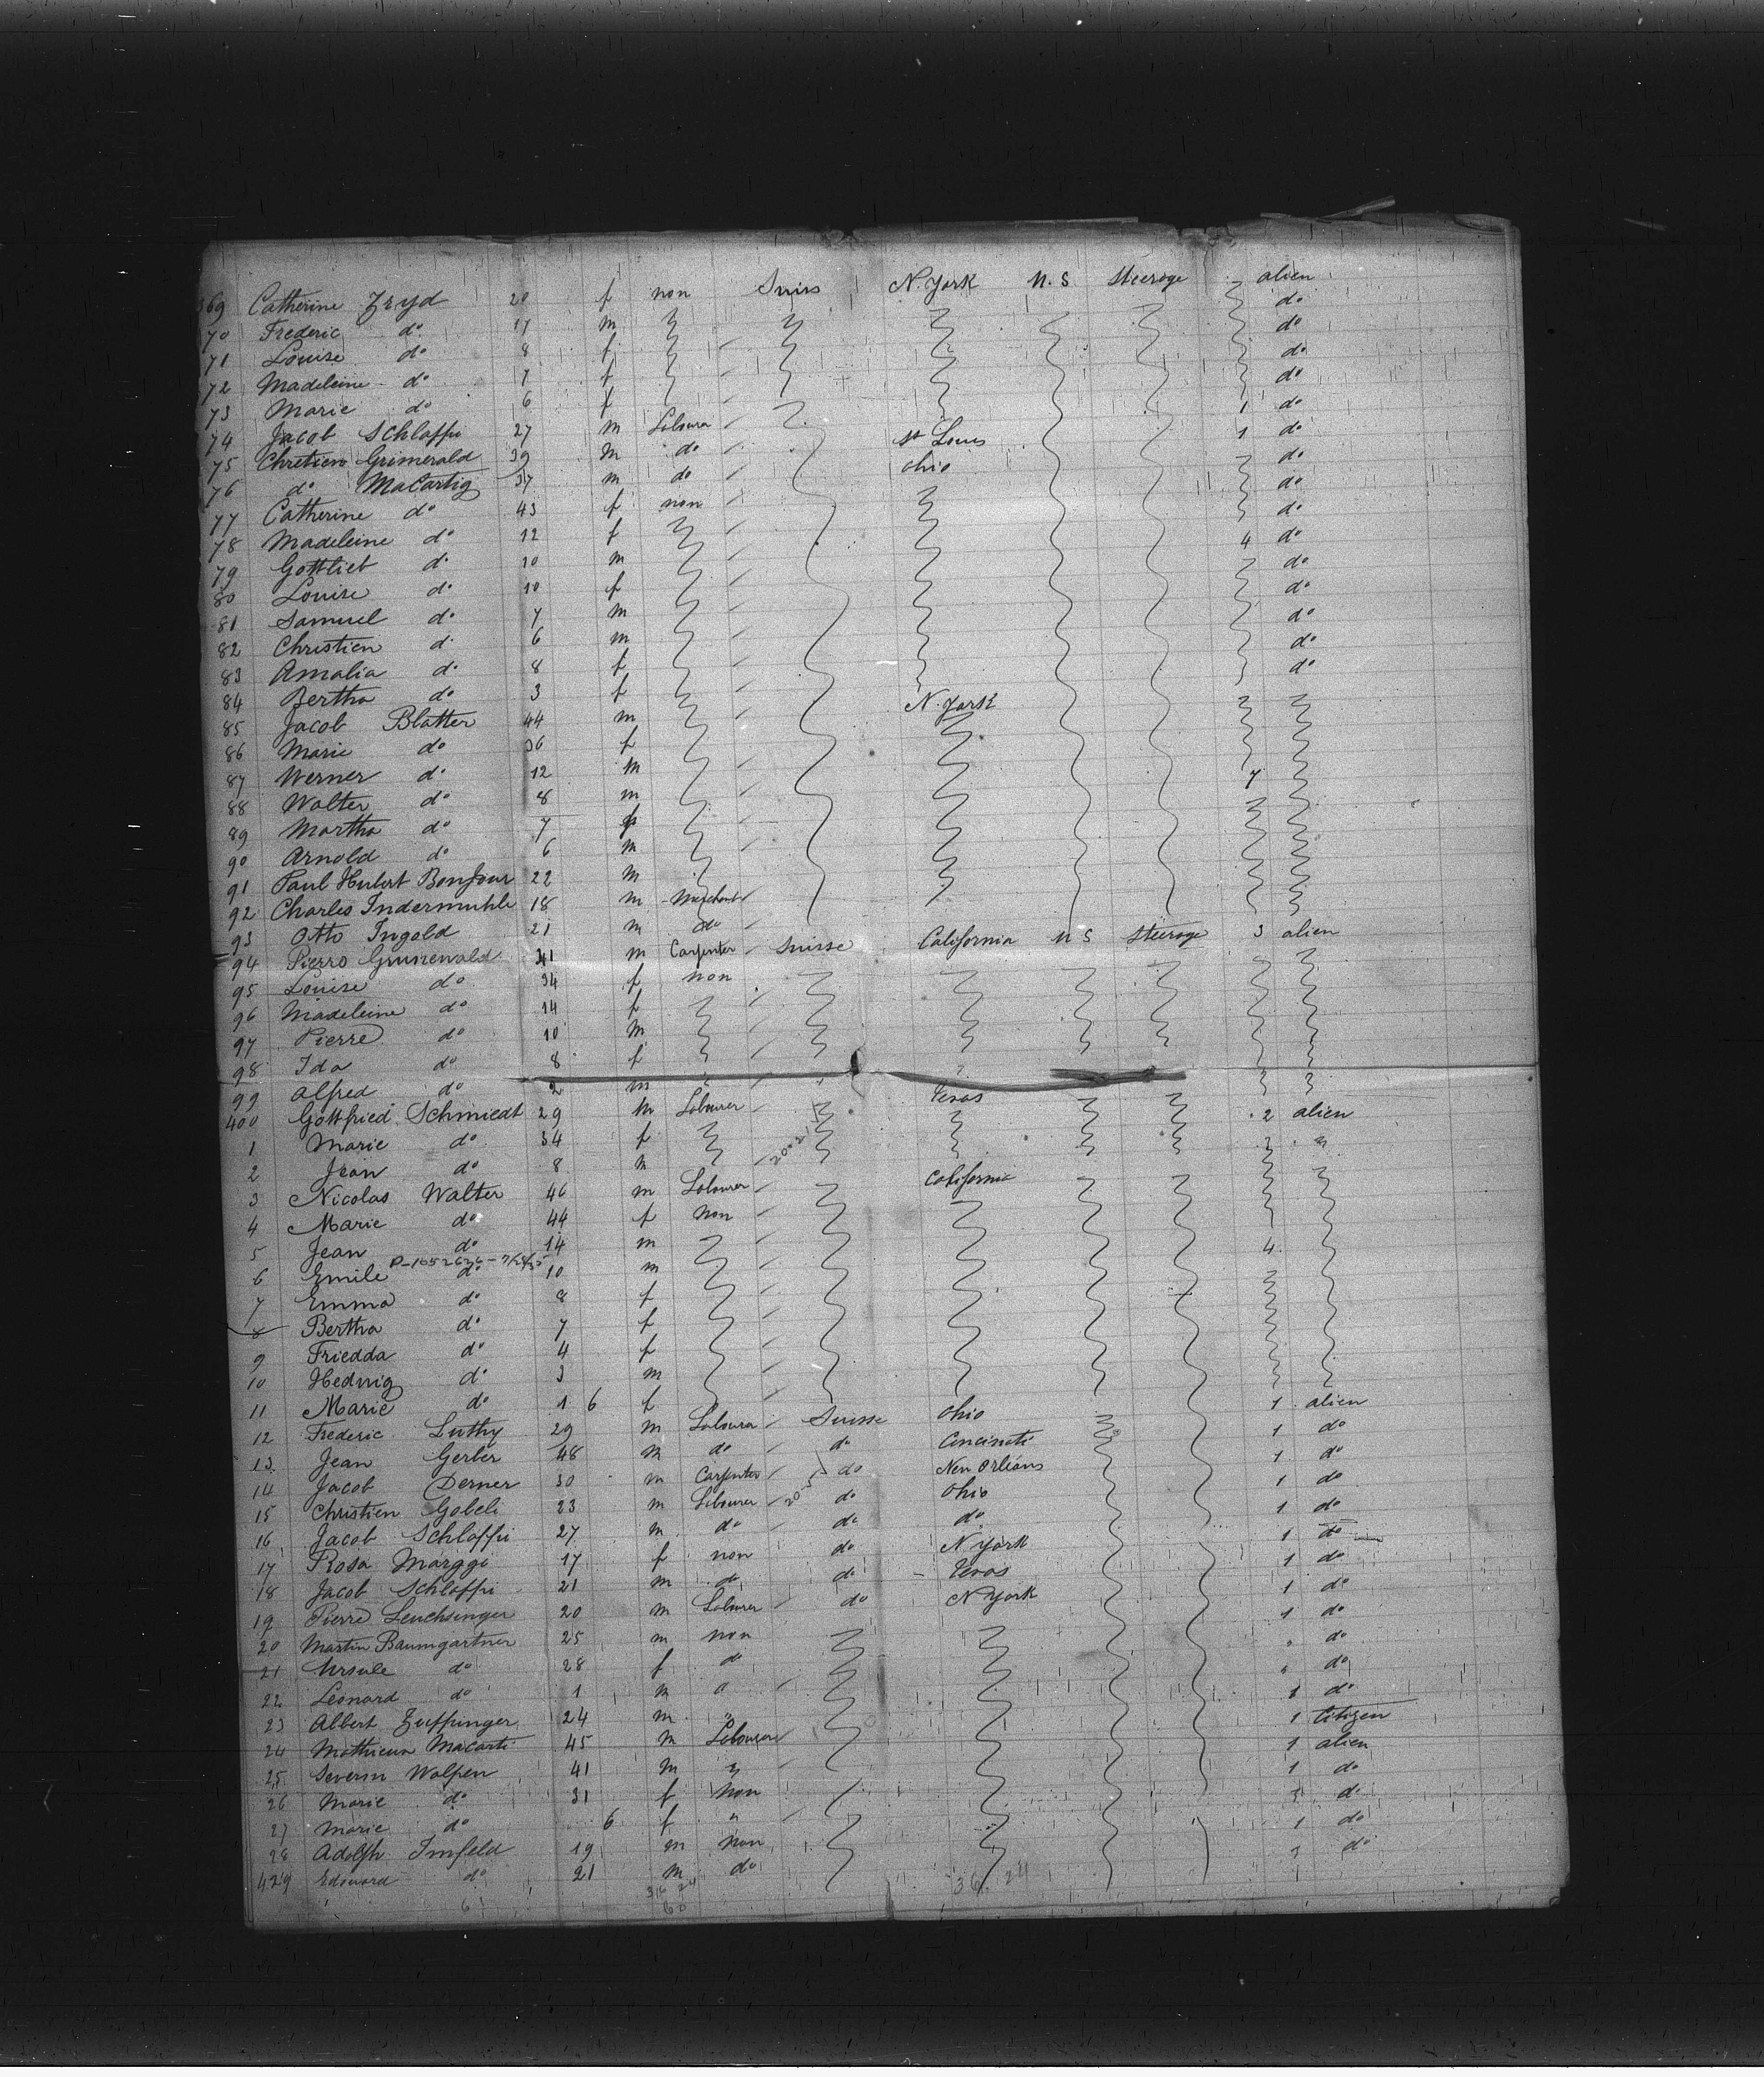 369 Catherine Zryd 20 f non Suiss N. York U.S Steerage alien
70 Frederic do 17 m do
71 Louise do 8 f do
72 Madeleine do 7 f do
73 Marie do 6 f do
74 Jacob Schlappi 27 m Labourer 1 do
75 Chretien Grimerald 39 m do St Louis 1 do
76 do Macartig 37 m do ohio do
77 Catherine do 43 f non do
78 Madeleine do 12 f do
79 Gottlieb do 10 m 4 do
80 Louise do 10 f do
81 Samuel do 7 m do
82 Christien do 6 m do
83 Amalia do 8 f do
84 Bertha do 3 f do
85 Jacob Blatter 44 m N. York
86 Marie do 36 f
87 Werner do 12 m
88 Walter do 8 m 7
89 Martha do 7 f
90 Arnold do 6 m
91 Paul Hubert Bonjour 22 m
92 Charles Indermuhle 18 m Merchant
93 Otto Ingold 21 m do
94 Pierro Grunewald 41 m Carpenter Suisse California U S Steerage 3 alien
95 Louise do 34 f non
96 Madeleine do 14 f
97 Pierre do 10 m
98 Ida do 8 f
99 Alfred do 2 m
400 Gottfried Schmiedt 29 m Labourer Texas 2 alien
1 Marie do 34 f
2 Jean do 8 m
3 Nicolas Walter 46 m Labourer California
4 Marie do 44 f non
5 Jean do 14 m 4
6 Emile do 10 m
7 Emma do 8 f
8 Bertha do 7 f
9 Friedda do 4 f
10 Hedwig do 3 m
11 Marie do 1 6 f 1 alien
12 Frederic Luthy 29 m Laboura Suisse Ohio 1 do
13 Jean Gerber 48 m do do Cincinati 1 do
14 Jacob Derner 30 m Carpenter do New Orléans 1 do
15 Christien Gobeli 23 m Labourer do Ohio 1 do
16 Jacob Schlappi 27 m do do do 1 do
17 Rosa Marggi 17 f non do N York 1 do
18 Jacob Schlappi 21 m do do Texas 1 do
19 Pierre Leuchsinger 20 m Labourer do N York 1 do
20 Martin Baumgartner 25 m non " do
21 Ursule do 28 f do " do
22 Leonard do 1 m 1 do
23 Albert Zuppinger 24 m " 1 Citizen
24 Mathieun Macarti 45 m Labourer 1 alien
25 Severin Walpen 41 m 1 do
26 Marie do 31 f Non do
27 Marie do 6 f " 1 do
28 Adolph Imfeld 19 m non do
429 Edouard do 21 m do
36 24 36 24
60